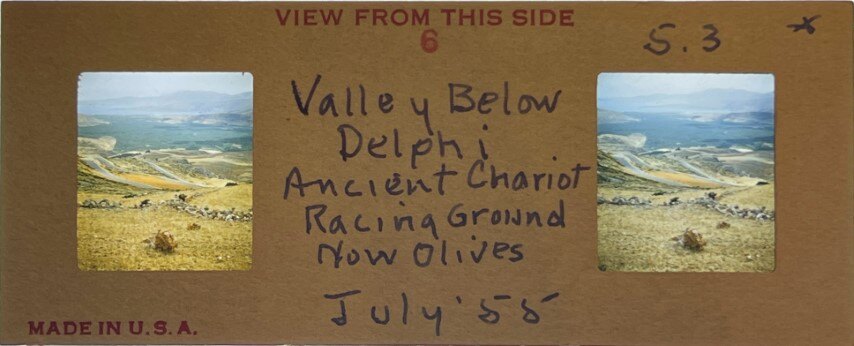 VIEW FROM THIS SIDE
6
S.3 x
Valley Below
Delphi
Ancient Chariot
Racing Ground
Now Olives
July '55
MADE IN U.S.A.